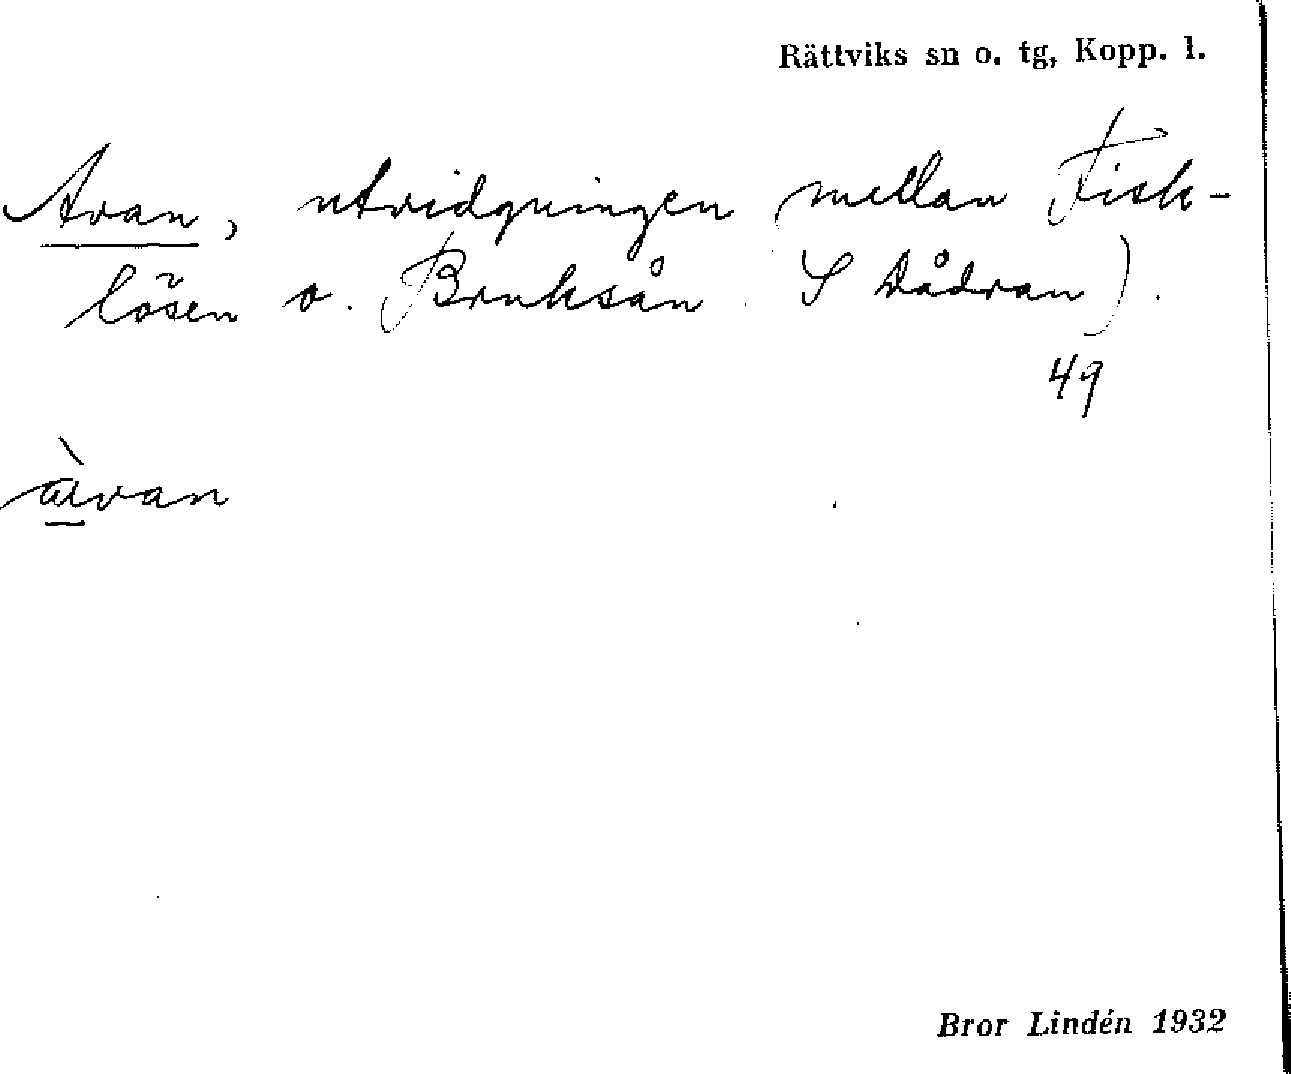 Rättviks sn o. tg, Kopp. l.
Avan, utvidgningen (mellan Fisk-
lösen o. Bruksån S Dådran).
49
àvan
Bror Lindén 1932